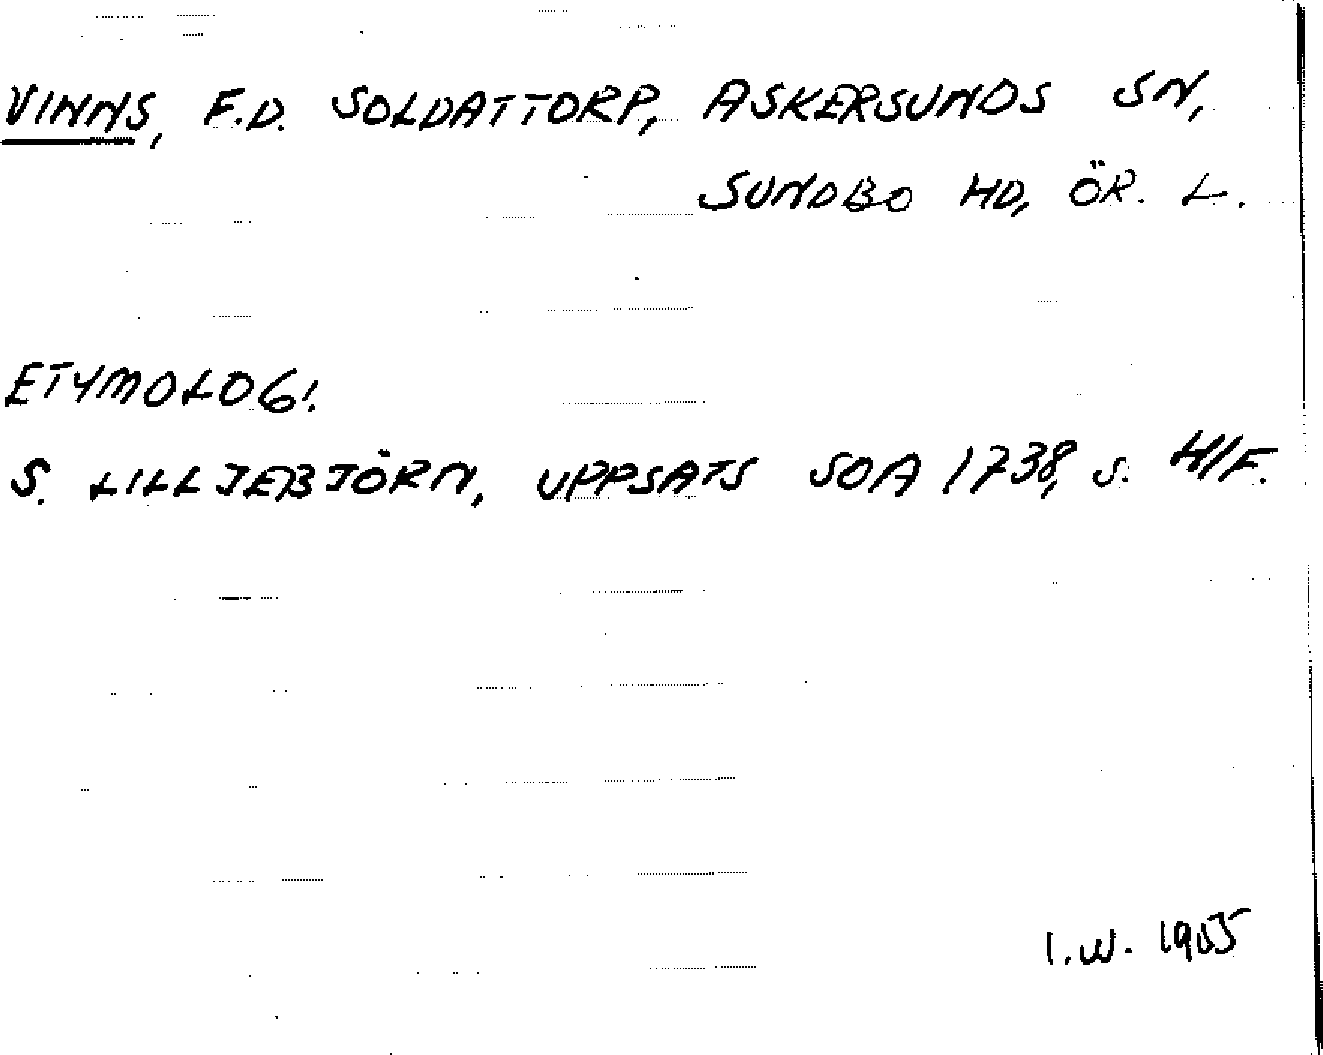 VINNS, F.D. SOLDATTORP, ASKERSUNDS SN,
SUNDBO HD, ÖR. L.
ETYMOLOGI.
S. LILLJEBJÖRN, UPPSATS SOA 1738, S. 41F.
I.W. 1985